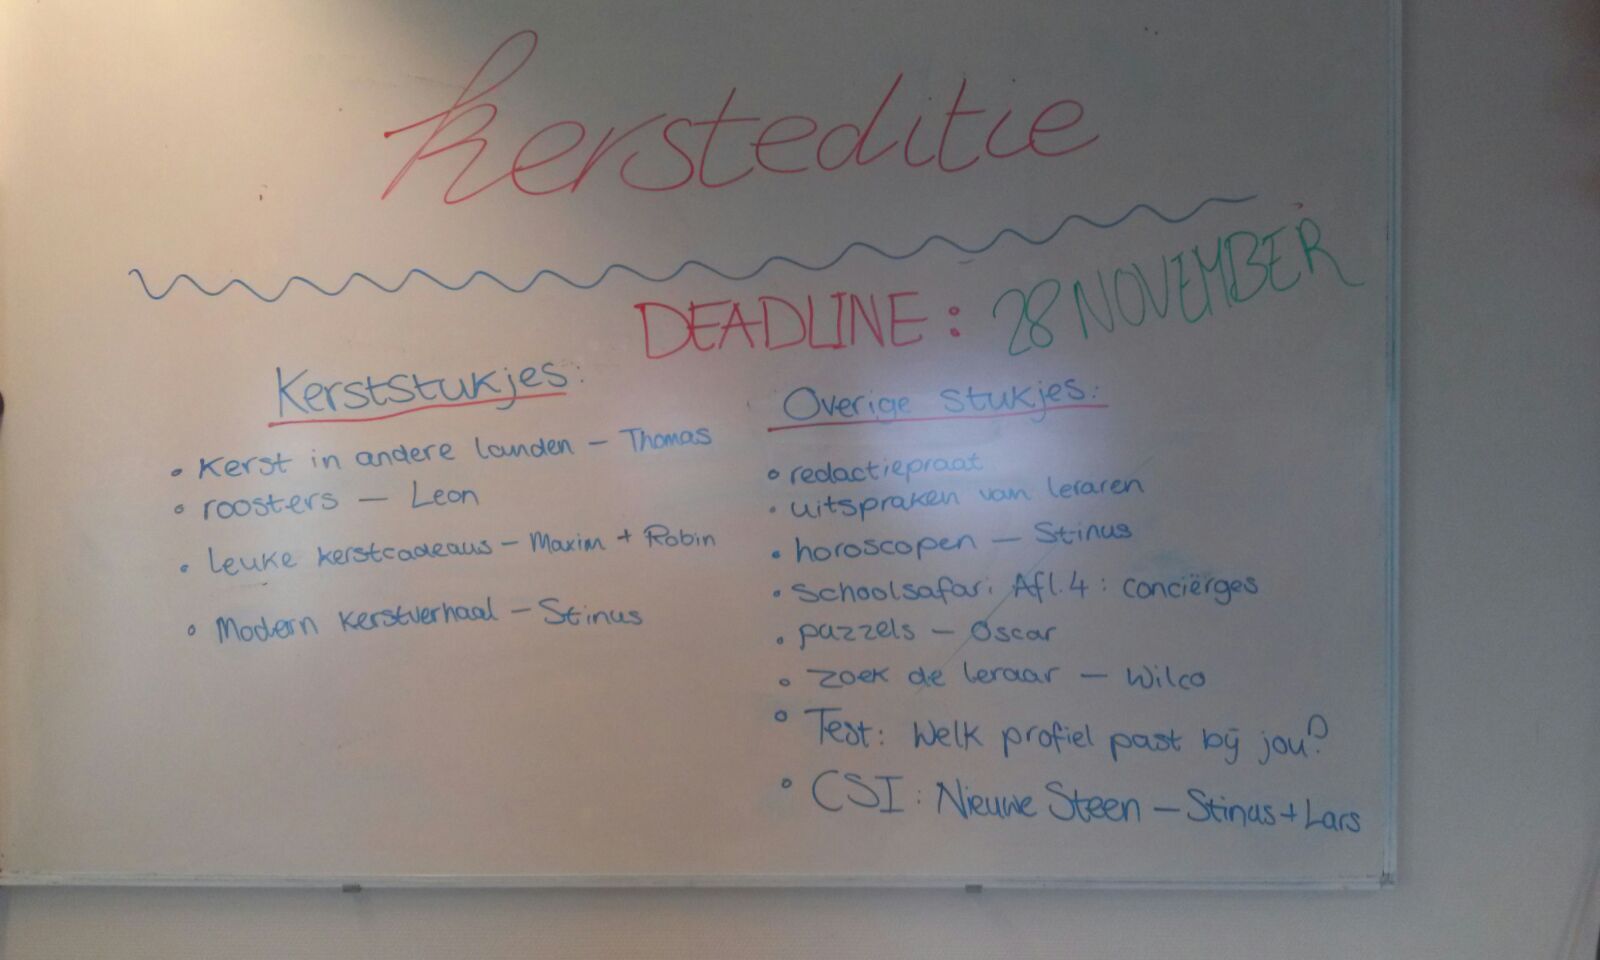 kersteditie
DEADLINE: 28 NOVEMBER
Kerststukjes:
• Kerst in andere landen – Thomas
• roosters – Leon
• Leuke kerstcadeaus – Maxim + Robin
• Modern kerstverhaal – Stinus
Overige stukjes:
• redactiepraat
• uitspraken van leraren
• horoscopen – Stinus
• Schoolsafari Afl. 4: conciërges
• puzzels – Oscar
• zoek de leraar – Wilco
• Test: Welk profiel past bij jou?
• CSI: Nieuwe Steen – Stinus + Lars